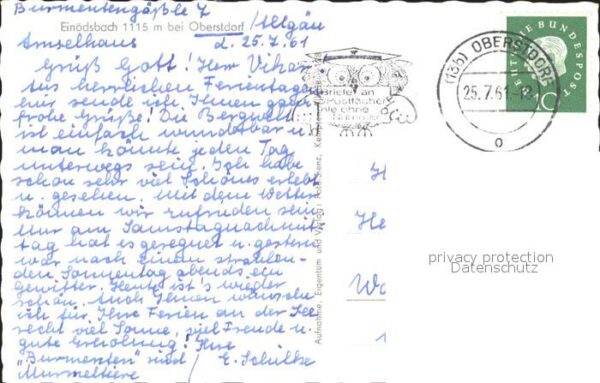 Burmentengäßle 7
Einödsbach 1115 m bei Oberstdorf / Allgäu
Amselhaus d. 25.7.61
Grüß Gott! Herr Vikar
Aus herrlichen Ferientagen
sende ich Ihnen
frohe Grüße! Die Bergwelt
ist einfach wunderbar u.
man könnte jeden Tag
unterwegs sein. Ich habe
schon sehr viel Schönes erlebt
u. gesehen. Mit dem Wetter
können wir zufrieden sein
Nur am Samstagnachmit-
tag hat es geregnet u. gestern
war nach einem strahlen-
den Sonnentag abends ein
Gewitter. Heute ist's wieder
schön. Auch Ihnen wünsche
ich für Ihre Ferien an der See
recht viel Sonne, viel Freude u.
gute Erholung! Ihre
"Burmenten" sind / E. Schülke
Murmeltiere
Briefe an
Postfächer
ohne
(13b) OBERSTDORF
25.7.61
o
DEUTSCHE BUNDESPOST
10
Aufnahme, Eigentum und Verlag:
H
He
Wa
privacy protection
Datenschutz